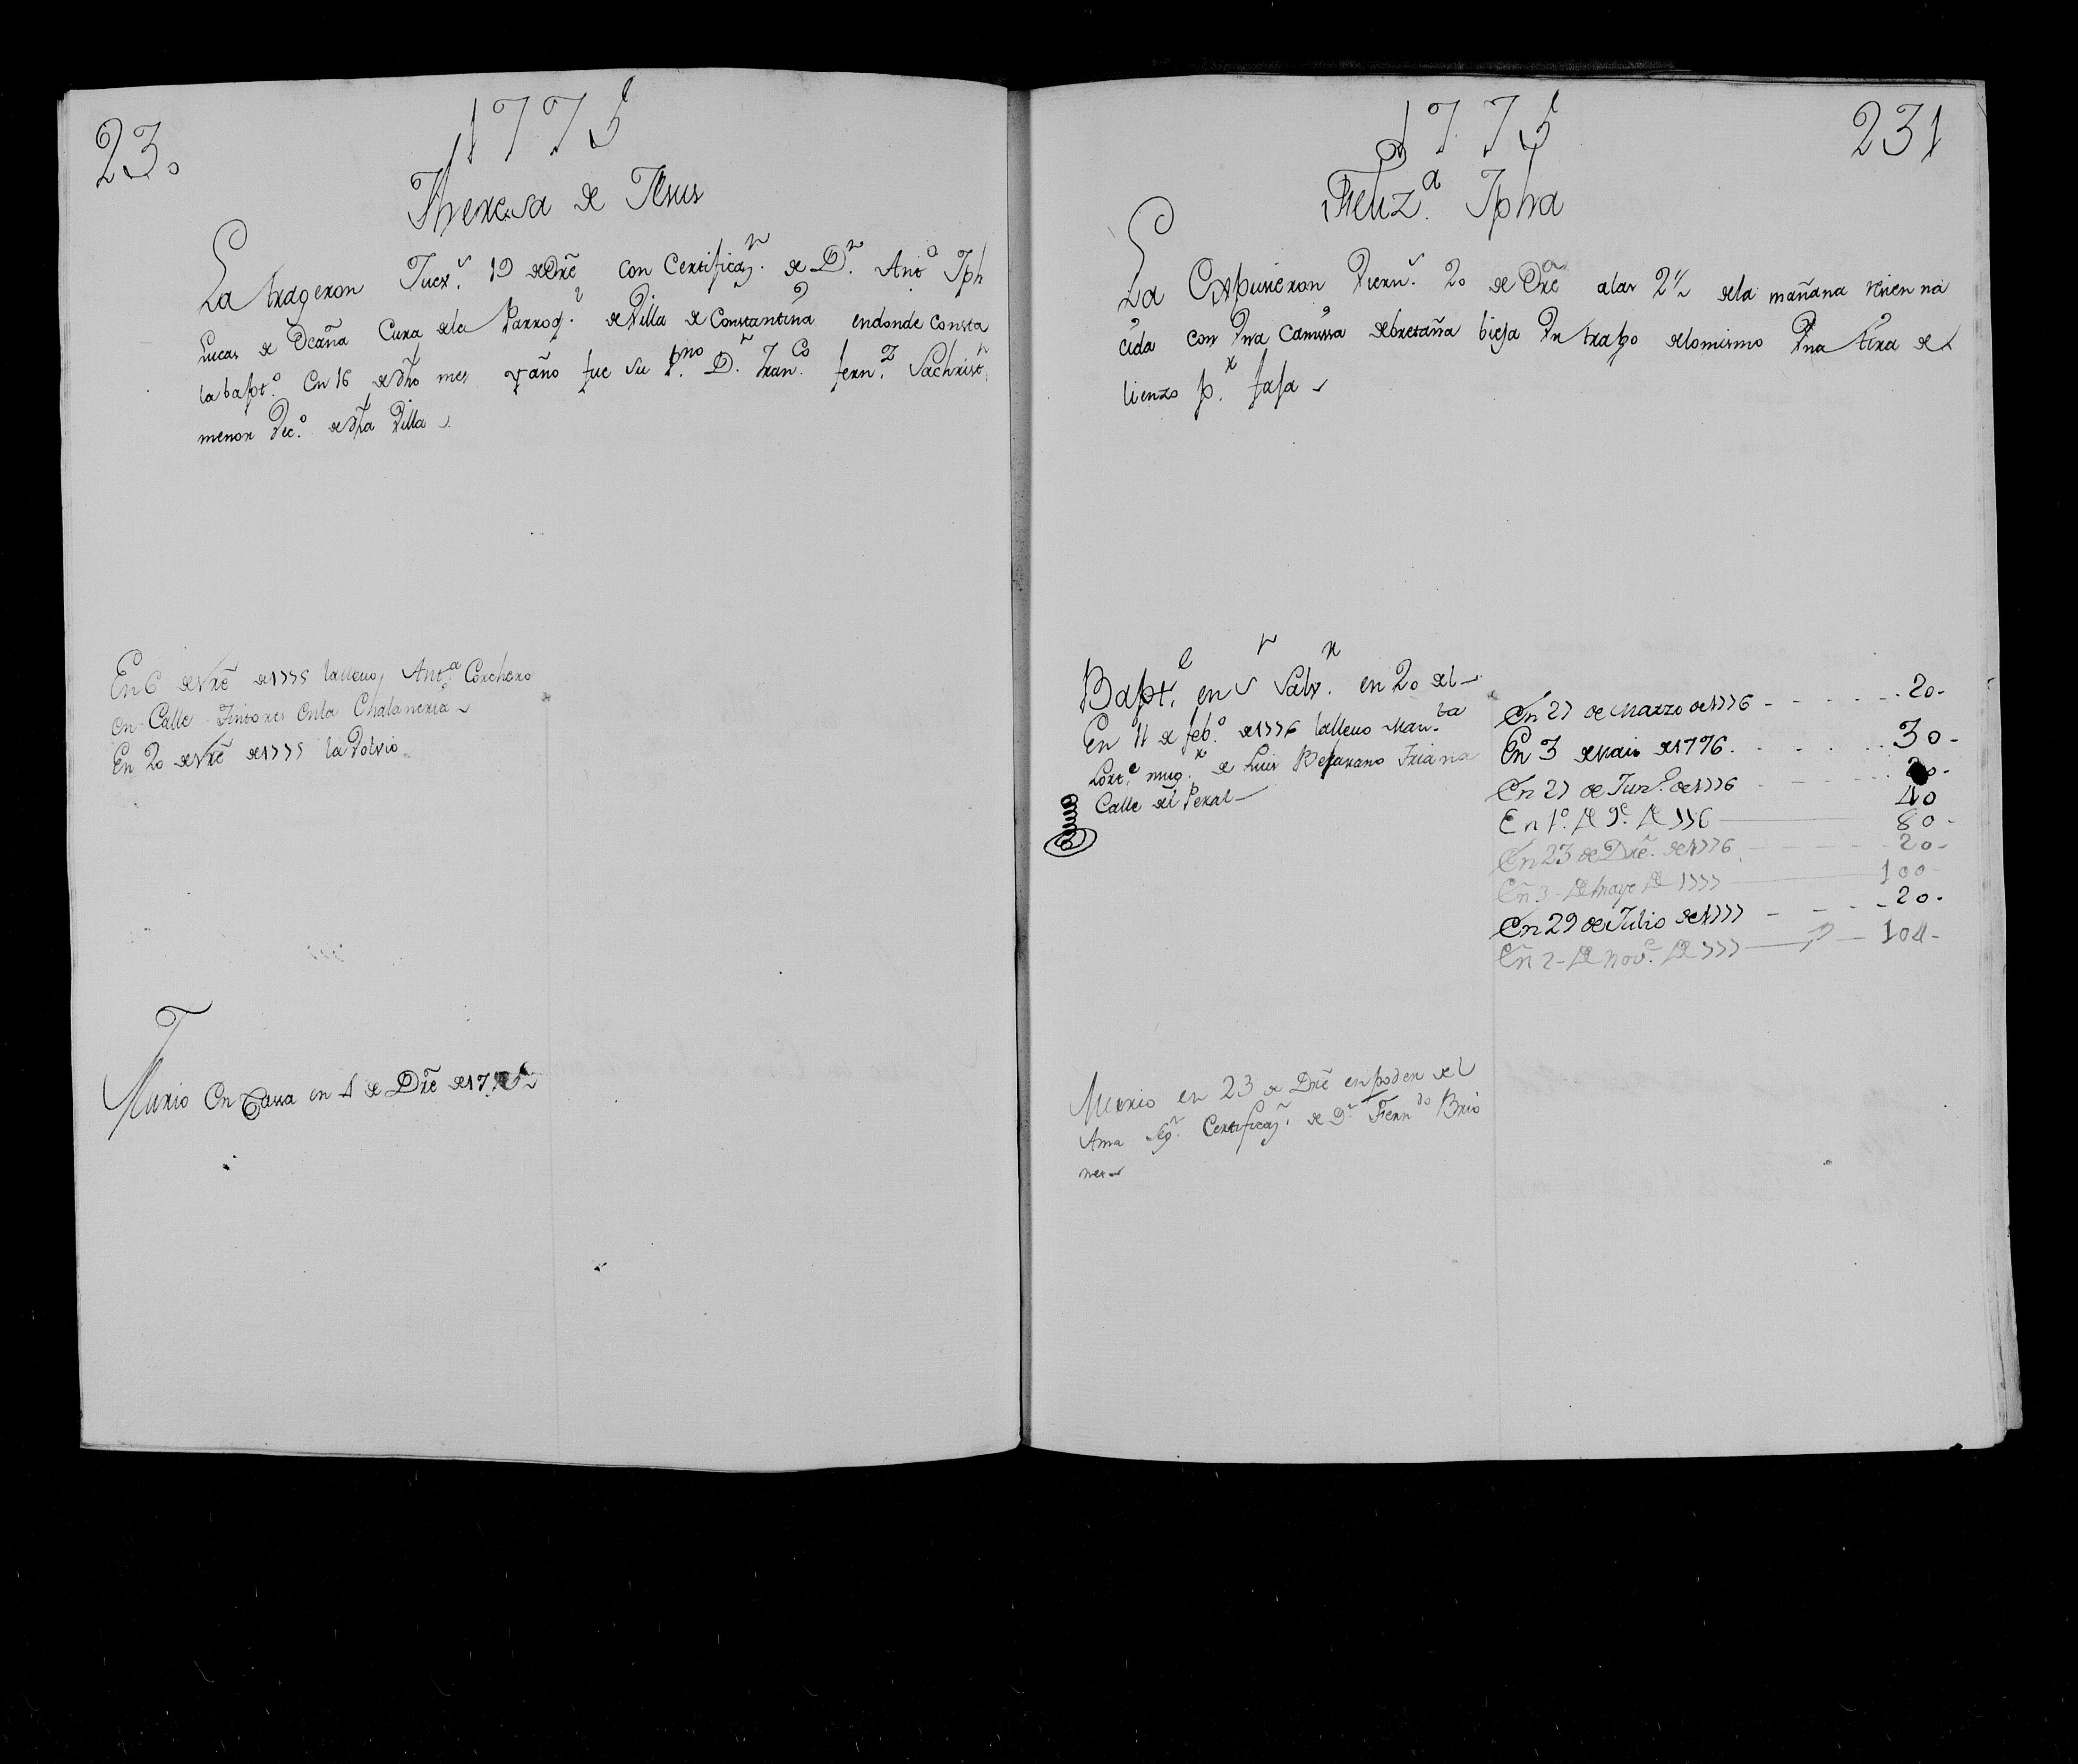 23.
1775
Theresa de Jesus
La trageron Juev.s 19 de Dre con Certificaz.n de D.n Ant.o Jph
Lucas de Ocaña Cura dela Parroq.l de Villa de Constantina endonde consta
la bapt.o en 16 de dho mes y año fue su P.no D.n Fran.co Fern.z Sachrist.n
menor Vec.o de dha Villa
En 6 de Nre de 1775 la llevo Ant.a Corchero
en Calle Tintores en la Chalaneria
En 20 de Nre de 1775 la Volvio
Murio en Casa en 4 de Dre de 1775
1775
231
Feliz.a Jpha
La Expusieron Viern.s 20 de Dre a las 2 1/2 dela mañana recien na
cida con Vna Camissa de bretaña bieja Vn trapo delo mismo Vna tira de
lienzo p.r faja
Bapt. en S.n Salv.r en 20 del
En 11 de feb.o de 1776 la llevo Man.la
Cort.e mug.r de Luis Bejarano Triana
Calle del Peral
En 27 de Marzo de 1776 - - - - - 20-
En 3 de Maio de 1776. - - - - 30-
En 27 de Jun.o de 1776 - - - 20-
40
En 1.o de 9.e de 776 — 80-
En 23 de Dre. de 1776 - - - - 20-
En 3 de Mayo de 1777 — 100-
En 29 de Julio de 1777 - - - - 20-
En 2 de Nov.e de 777 — 104-
Murio en 23 de Dre en poder del
Ama seg.n Certificaz.n de D.n Fern.do Brio
nes